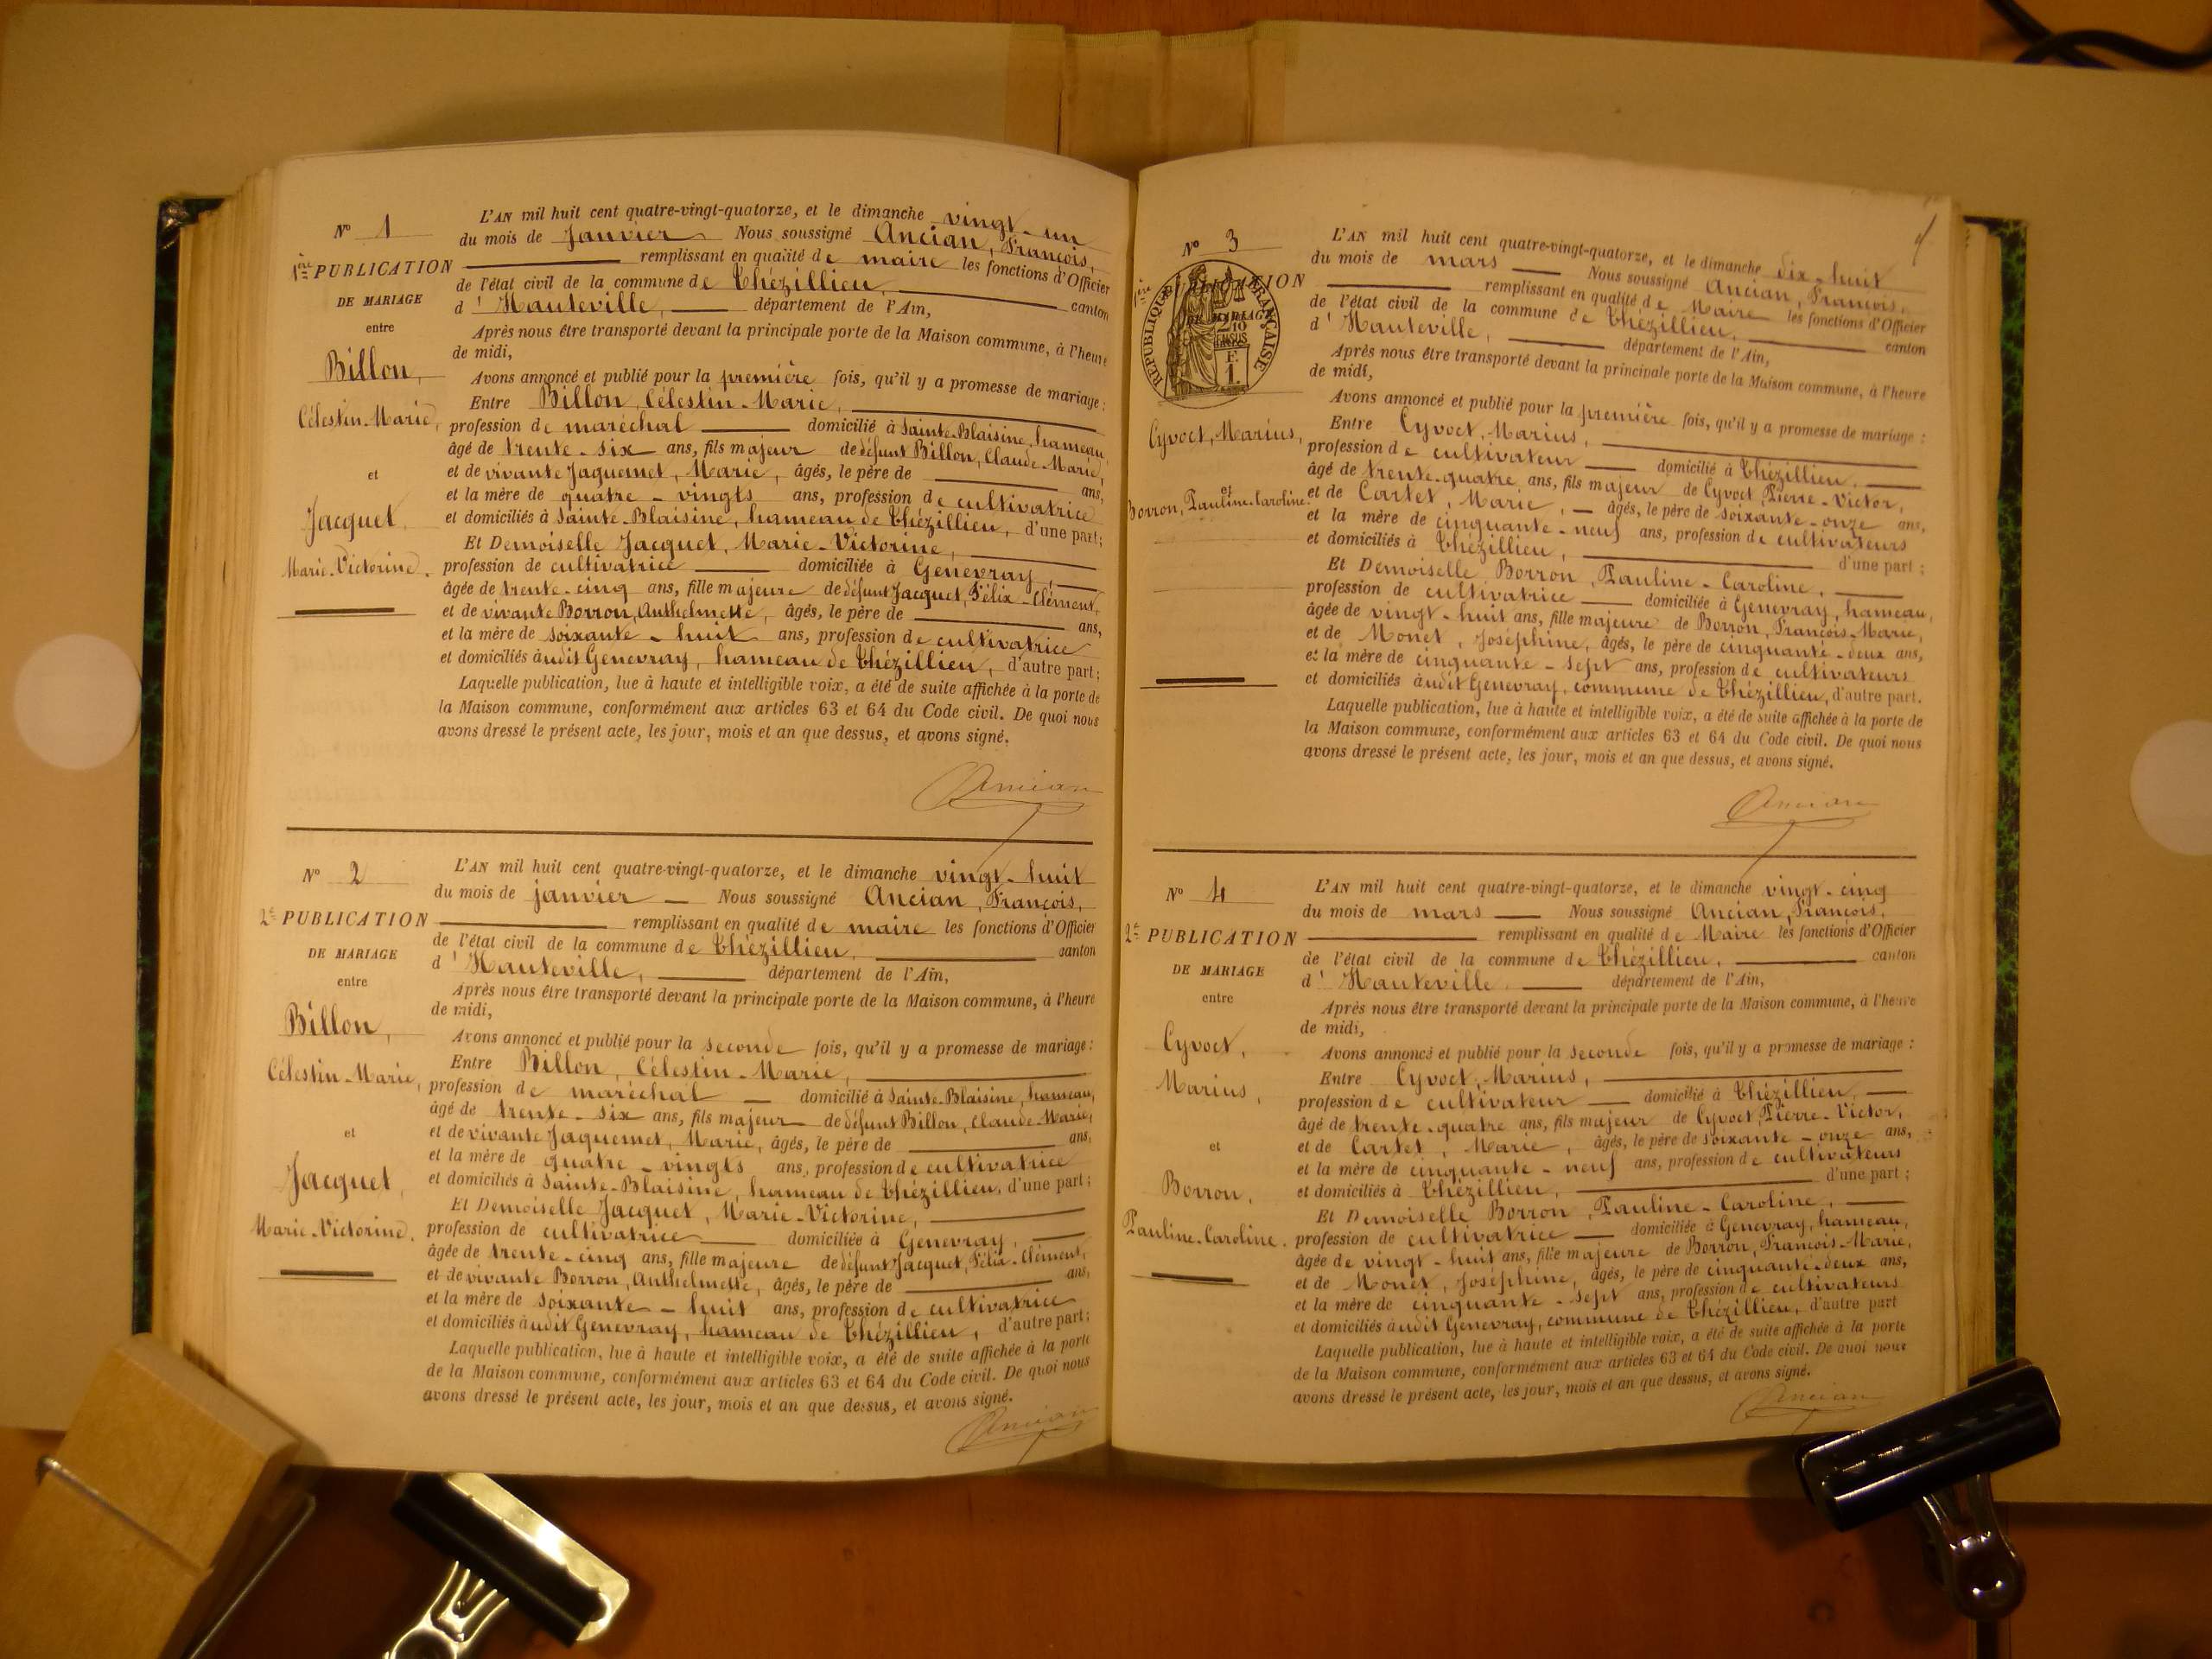 N° 1
1ère PUBLICATION
DE MARIAGE
entre
Billon,
Célestin-Marie,
et
Jacquet,
Marie-Victorine.
L'AN mil huit cent quatre-vingt-quatorze, et le dimanche vingt-un
du mois de Janvier Nous soussigné Ancian, François,
remplissant en qualité de maire les fonctions d'Officier
de l'état civil de la commune de Thézillieu, canton
d'Hauteville, département de l'Ain,
Après nous être transporté devant la principale porte de la Maison commune, à l'heure
de midi,
Avons annoncé et publié pour la première fois, qu'il y a promesse de mariage :
Entre Billon, Célestin-Marie,
profession de maréchal domicilié à Sainte-Blaisine, hameau,
âgé de trente-six ans, fils majeur de défunt Billon, Claude-Marie,
et de vivante Jaquemet, Marie, âgés, le père de ans,
et la mère de quatre-vingts ans, profession de cultivatrice
et domiciliés à Sainte-Blaisine, hameau de Thézillieu, d'une part;
Et Demoiselle Jacquet, Marie-Victorine,
profession de cultivatrice domiciliée à Genevray,
âgée de trente-cinq ans, fille majeure de défunt Jacquet, Félix-Clément,
et de vivante Borron, Anthelmette, âgés, le père de ans,
et la mère de soixante-huit ans, profession de cultivatrice
et domiciliés àudit Genevray, hameau de Thézillieu, d'autre part;
Laquelle publication, lue à haute et intelligible voix, a été de suite affichée à la porte de
la Maison commune, conformément aux articles 63 et 64 du Code civil. De quoi nous
avons dressé le présent acte, les jour, mois et an que dessus, et avons signé.
Ancian
N° 2
2e PUBLICATION
DE MARIAGE
entre
Billon,
Célestin-Marie,
et
Jacquet,
Marie-Victorine.
L'AN mil huit cent quatre-vingt-quatorze, et le dimanche vingt-huit
du mois de janvier Nous soussigné Ancian, François,
remplissant en qualité de maire les fonctions d'Officier
de l'état civil de la commune de Thézillieu, canton
d'Hauteville, département de l'Ain,
Après nous être transporté devant la principale porte de la Maison commune, à l'heure
de midi,
Avons annoncé et publié pour la seconde fois, qu'il y a promesse de mariage :
Entre Billon, Célestin-Marie,
profession de maréchal domicilié à Sainte-Blaisine, hameau,
âgé de trente-six ans, fils majeur de défunt Billon, Claude-Marie,
et de vivante Jaquemet, Marie, âgés, le père de ans,
et la mère de quatre-vingts ans, profession de cultivatrice
et domiciliés à Sainte-Blaisine, hameau de Thézillieu, d'une part;
Et Demoiselle Jacquet, Marie-Victorine,
profession de cultivatrice domiciliée à Genevray,
âgée de trente-cinq ans, fille majeure de défunt Jacquet, Félix-Clément,
et de vivante Borron, Anthelmette, âgés, le père de ans,
et la mère de soixante-huit ans, profession de cultivatrice
et domiciliés àudit Genevray, hameau de Thézillieu, d'autre part;
Laquelle publication, lue à haute et intelligible voix, a été de suite affichée à la porte
de la Maison commune, conformément aux articles 63 et 64 du Code civil. De quoi nous
avons dressé le présent acte, les jour, mois et an que dessus, et avons signé.
Ancian
N° 3
1ère PUBLICATION
DE MARIAGE
RÉPUBLIQUE FRANÇAISE
2/10 EN SUS
F. 1.
Cyvoct, Marius,
et
Borron, Pauline-Caroline.
L'AN mil huit cent quatre-vingt-quatorze, et le dimanche dix-huit
du mois de mars Nous soussigné Ancian, François,
remplissant en qualité de Maire les fonctions d'Officier
de l'état civil de la commune de Thézillieu, canton
d'Hauteville, département de l'Ain,
Après nous être transporté devant la principale porte de la Maison commune, à l'heure
de midi,
Avons annoncé et publié pour la première fois, qu'il y a promesse de mariage :
Entre Cyvoct, Marius,
profession de cultivateur domicilié à Thézillieu,
âgé de trente-quatre ans, fils majeur de Cyvoct, Pierre-Victor,
et de Cartet, Marie, âgés, le père de soixante-onze ans,
et la mère de cinquante-neuf ans, profession de cultivateurs
et domiciliés à Thézillieu, d'une part;
Et Demoiselle Borron, Pauline-Caroline,
profession de cultivatrice domiciliée à Genevray, hameau,
âgée de vingt-huit ans, fille majeure de Borron, François-Marie,
et de Monet, Joséphine, âgés, le père de cinquante-deux ans,
et la mère de cinquante-sept ans, profession de cultivateurs
et domiciliés àudit Genevray, commune de Thézillieu, d'autre part.
Laquelle publication, lue à haute et intelligible voix, a été de suite affichée à la porte de
la Maison commune, conformément aux articles 63 et 64 du Code civil. De quoi nous
avons dressé le présent acte, les jour, mois et an que dessus, et avons signé.
Ancian
N° 4
2e PUBLICATION
DE MARIAGE
entre
Cyvoct,
Marius,
et
Borron,
Pauline-Caroline.
L'AN mil huit cent quatre-vingt-quatorze, et le dimanche vingt-cinq
du mois de mars Nous soussigné Ancian, François,
remplissant en qualité de Maire les fonctions d'Officier
de l'état civil de la commune de Thézillieu, canton
d'Hauteville, département de l'Ain,
Après nous être transporté devant la principale porte de la Maison commune, à l'heure
de midi,
Avons annoncé et publié pour la seconde fois, qu'il y a promesse de mariage :
Entre Cyvoct, Marius,
profession de cultivateur domicilié à Thézillieu,
âgé de trente-quatre ans, fils majeur de Cyvoct, Pierre-Victor,
et de Cartet, Marie, âgés, le père de soixante-onze ans,
et la mère de cinquante-neuf ans, profession de cultivateurs
et domiciliés à Thézillieu, d'une part;
Et Demoiselle Borron, Pauline-Caroline,
profession de cultivatrice domiciliée à Genevray, hameau,
âgée de vingt-huit ans, fille majeure de Borron, François-Marie,
et de Monet, Joséphine, âgés, le père de cinquante-deux ans,
et la mère de cinquante-sept ans, profession de cultivateurs
et domiciliés àudit Genevray, commune de Thézillieu, d'autre part
Laquelle publication, lue à haute et intelligible voix, a été de suite affichée à la porte
de la Maison commune, conformément aux articles 63 et 64 du Code civil. De quoi nous
avons dressé le présent acte, les jour, mois et an que dessus, et avons signé.
Ancian